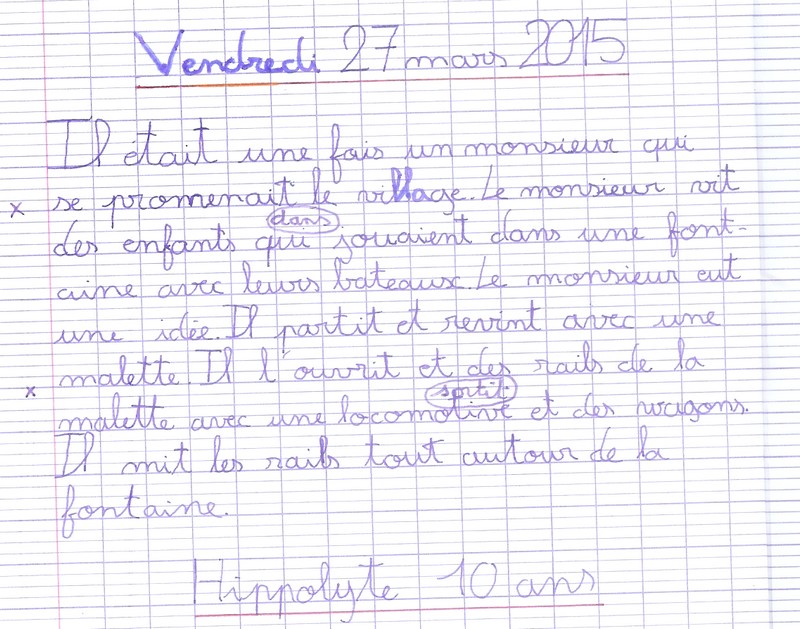 Vendredi 27 mars 2015
Il était une fois un monsieur qui
x se promenait le village. Le monsieur vit
dans
des enfants qui jouaient dans une font-
aine avec leurs bateaux. Le monsieur eut
une idée. Il partit et revint avec une
malette. Il l'ouvrit et des rails de la
x sortit
malette avec une locomotive et des wagons.
Il mit les rails tout autour de la
fontaine.
Hippolyte 10 ans